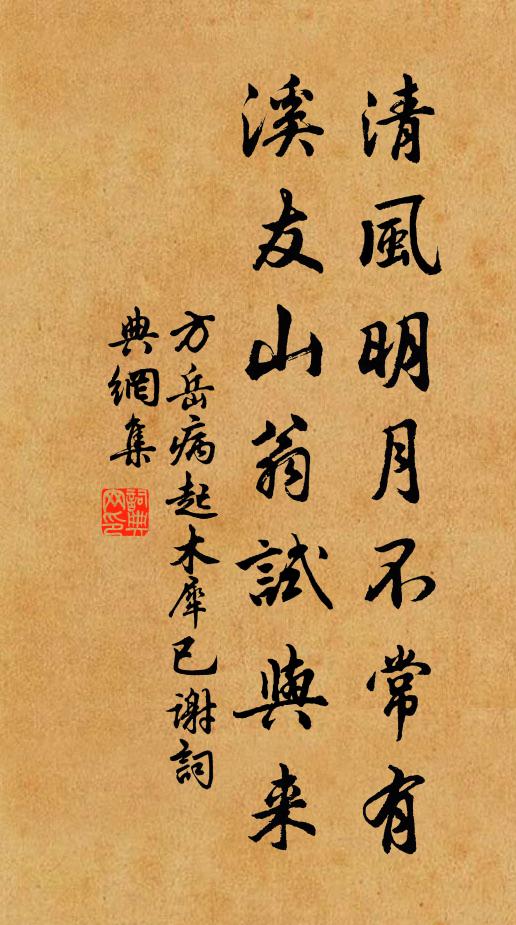 清風明月不常有
溪友山翁試與来
方岳病起木犀已謝詞
典網集
詞典網印